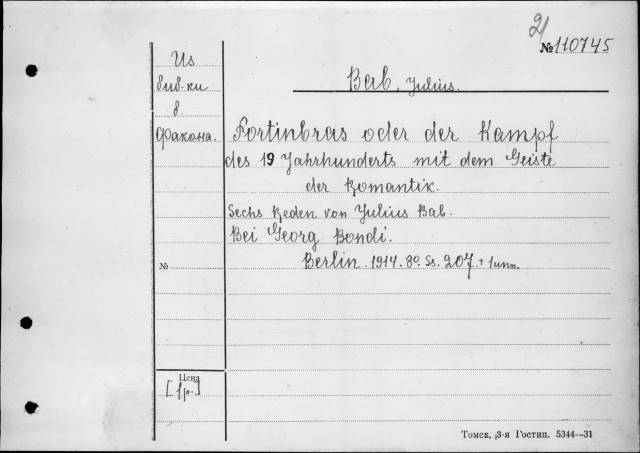 21
№110745
Из
биб-ки
в.
Факона.
Bab, Julius.
Fortinbras oder der Kampf
des 19 Jahrhunderts mit dem Geiste
der Romantik.
Sechs Reden von Julius Bab.
Bei Georg Bondi.
Berlin. 1914. 8º. Ss. 207 + 1 unn.
№
Цена
[1р.]
Томск, 3-я Гостип. 5344—31